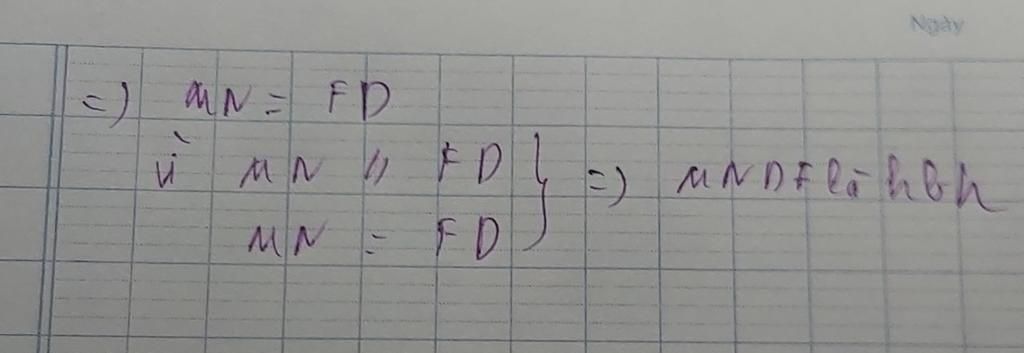 Ngày
=) MN = FD
Vì MN // FD } =) MNDF là hbh
MN = FD